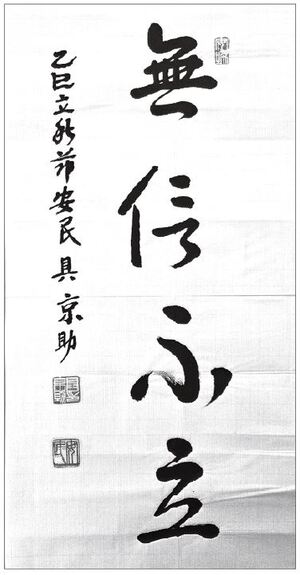 無信不立
乙巳立秋節安民 具京助